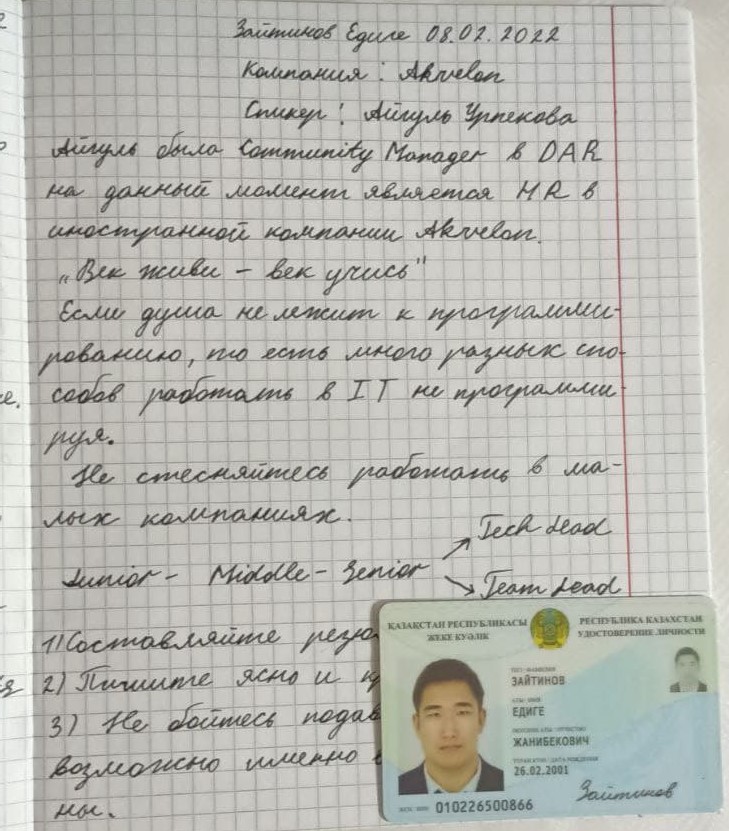 Зайтинов Едиге 08.02.2022
Компания: Akvelon
Спикер: Айгуль Урпекова
Айгуль была Community Manager в DAR
на данный момент является HR в
иностранной компании Akvelon.
„Век живи - век учись"
Если душа не лежит к программи-
рованию, то есть много разных спо-
собов работать в IT не программи-
руя.
Не стесняйтесь работать в ма-
лых компаниях.
Tech Lead
Junior - Middle - Senior
Team Lead
1) Составляйте
2) Пишите ясно и
3) Не бойтесь
возможно именно
ны.
ҚАЗАҚСТАН РЕСПУБЛИКАСЫ
ЖЕКЕ КУӘЛІК
РЕСПУБЛИКА КАЗАХСТАН
УДОСТОВЕРЕНИЕ ЛИЧНОСТИ
ТЕГІ / ФАМИЛИЯ
ЗАЙТИНОВ
АТЫ / ИМЯ
ЕДИГЕ
ӘКЕСІНІҢ АТЫ / ОТЧЕСТВО
ЖАНИБЕКОВИЧ
ТУҒАН КҮНІ / ДАТА РОЖДЕНИЯ
26.02.2001
ЖСН / ИИН 010226500866
Зайтинов